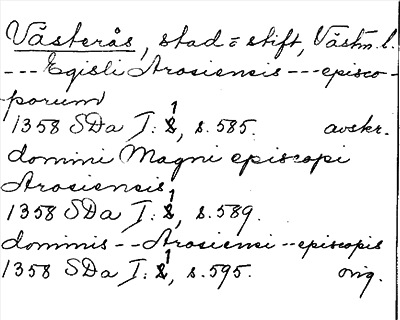 Västerås, stad = stift, Västm. l.
--- Egisli Arosiensis --- episco-
porum
1358 SDa I: 1, s. 585. avskr.
domini Magni episcopi
Arosiensis
1358 SDa I: 1, s. 589.
dominis -- Arosiensi -- episcopis
1358 SDa I: 1, s. 595. orig.